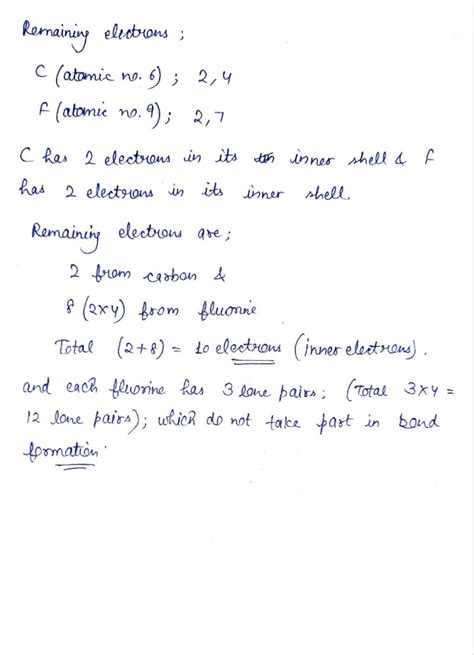 Remaining electrons ;
C (atomic no. 6) ; 2, 4
F (atomic no. 9) ; 2, 7
C has 2 electrons in its inner shell & F
has 2 electrons in its inner shell.
Remaining electrons are ;
2 from carbon &
8 (2x4) from fluorine
Total (2+8) = 10 electrons (inner electrons).
and each fluorine has 3 lone pairs ; (Total 3x4 =
12 lone pairs) ; which do not take part in bond
formation.